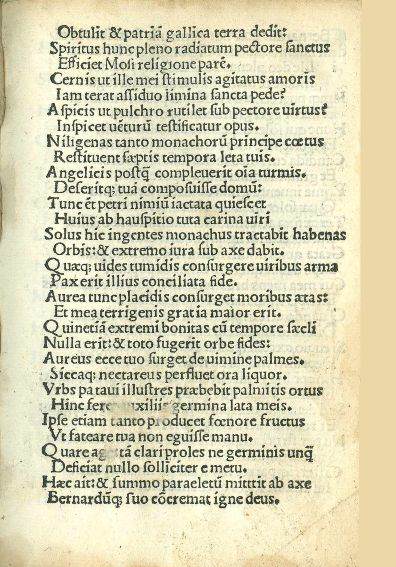 Obtulit & patriā gallica terra dedit:
Spiritus hunc pleno radiatum pectore sanctus
Efficiet Mosi religione parē.
Cernis ut ille mei stimulis agitatus amoris
Iam terat assiduo limina sancta pede?
Aspicis ut pulchro rutilet sub pectore uirtus?
Inspicet uēturū testificatur opus.
Niligenas tanto monachorū principe cœtus
Restituent sæptis tempora leta tuis.
Angelicis postq̄ compleuerit oīa turmis.
Deseritq; tuā composuisse domū:
Tunc et petri nimiū iactata quiescet
Huius ab hauspitio tuta carina uiri
Solus hic ingentes monachus tractabit habenas
Orbis: & extremo iura sub axe dabit.
Quæq; uides tumidis consurgere uiribus arma
Pax erit illius conciliata fide.
Aurea tunc placidis consurget moribus ætas:
Et mea terrigenis gratia maior erit.
Quinetiā extremi bonitas cū tempore sæcli
Nulla erit: & toto fugerit orbe fides:
Aureus ecce tuo surget de uimine palmes.
Siccaq; nectareus perfluet ora liquor.
Vrbs pataui illustres præbebit palmitis ortus
Hinc fere xiliis germina lata meis.
Ipse etiam tanto producet fœnore fructus
Vt fateare tua non eguisse manu.
Quare ta clari proles ne germinis unq̄
Deficiat nullo solliciter e metu.
Hæc ait: & summo paraeletū mittit ab axe
Bernardūq; suo cōcremat igne deus.